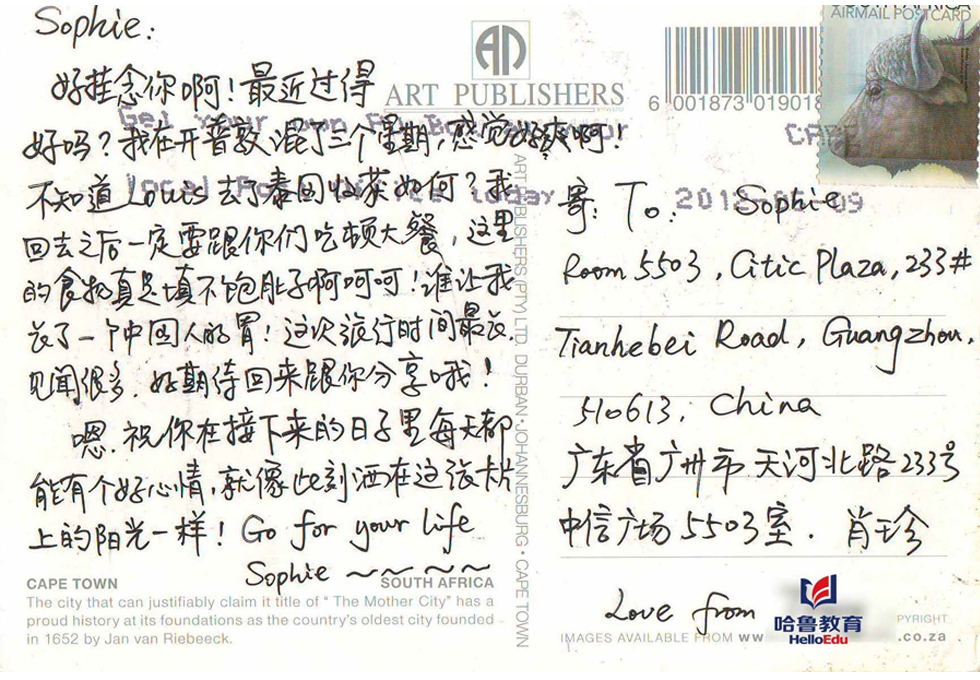 Sophie:
好挂念你啊！最近过得
好吗？我在开普敦混了三个星期，感觉好爽啊！
不知道Louis去了泰国收获如何？我
回去之后一定要跟你们吃顿大餐，这里
的食物真是填不饱肚子啊呵呵！谁让我
长了一个中国人的胃！这次旅行时间最长，
见闻很多，好期待回来跟你分享哦！
嗯，祝你在接下来的日子里每天都
能有个好心情，就像此刻洒在这张卡片
上的阳光一样！Go for your life
Sophie ~~~~
CAPE TOWN
SOUTH AFRICA
The city that can justifiably claim it title of “ The Mother City” has a
proud history at its foundations as the country's oldest city founded
in 1652 by Jan van Riebeeck.
AN
ART PUBLISHERS
ART PUBLISHERS (PTY) LTD DURBAN • JOHANNESBURG • CAPE TOWN
6 001873 019018
AIRMAIL POSTCARD
CAPE
寄：To: Sophie
Room 5503, Citic Plaza, 233#
Tianhebei Road, Guangzhou,
510613, China
广东省广州市天河北路233号
中信广场5503室. 肖珍
Love from
哈鲁教育
HelloEdu
IMAGES AVAILABLE FROM ww
PYRIGHT
.co.za